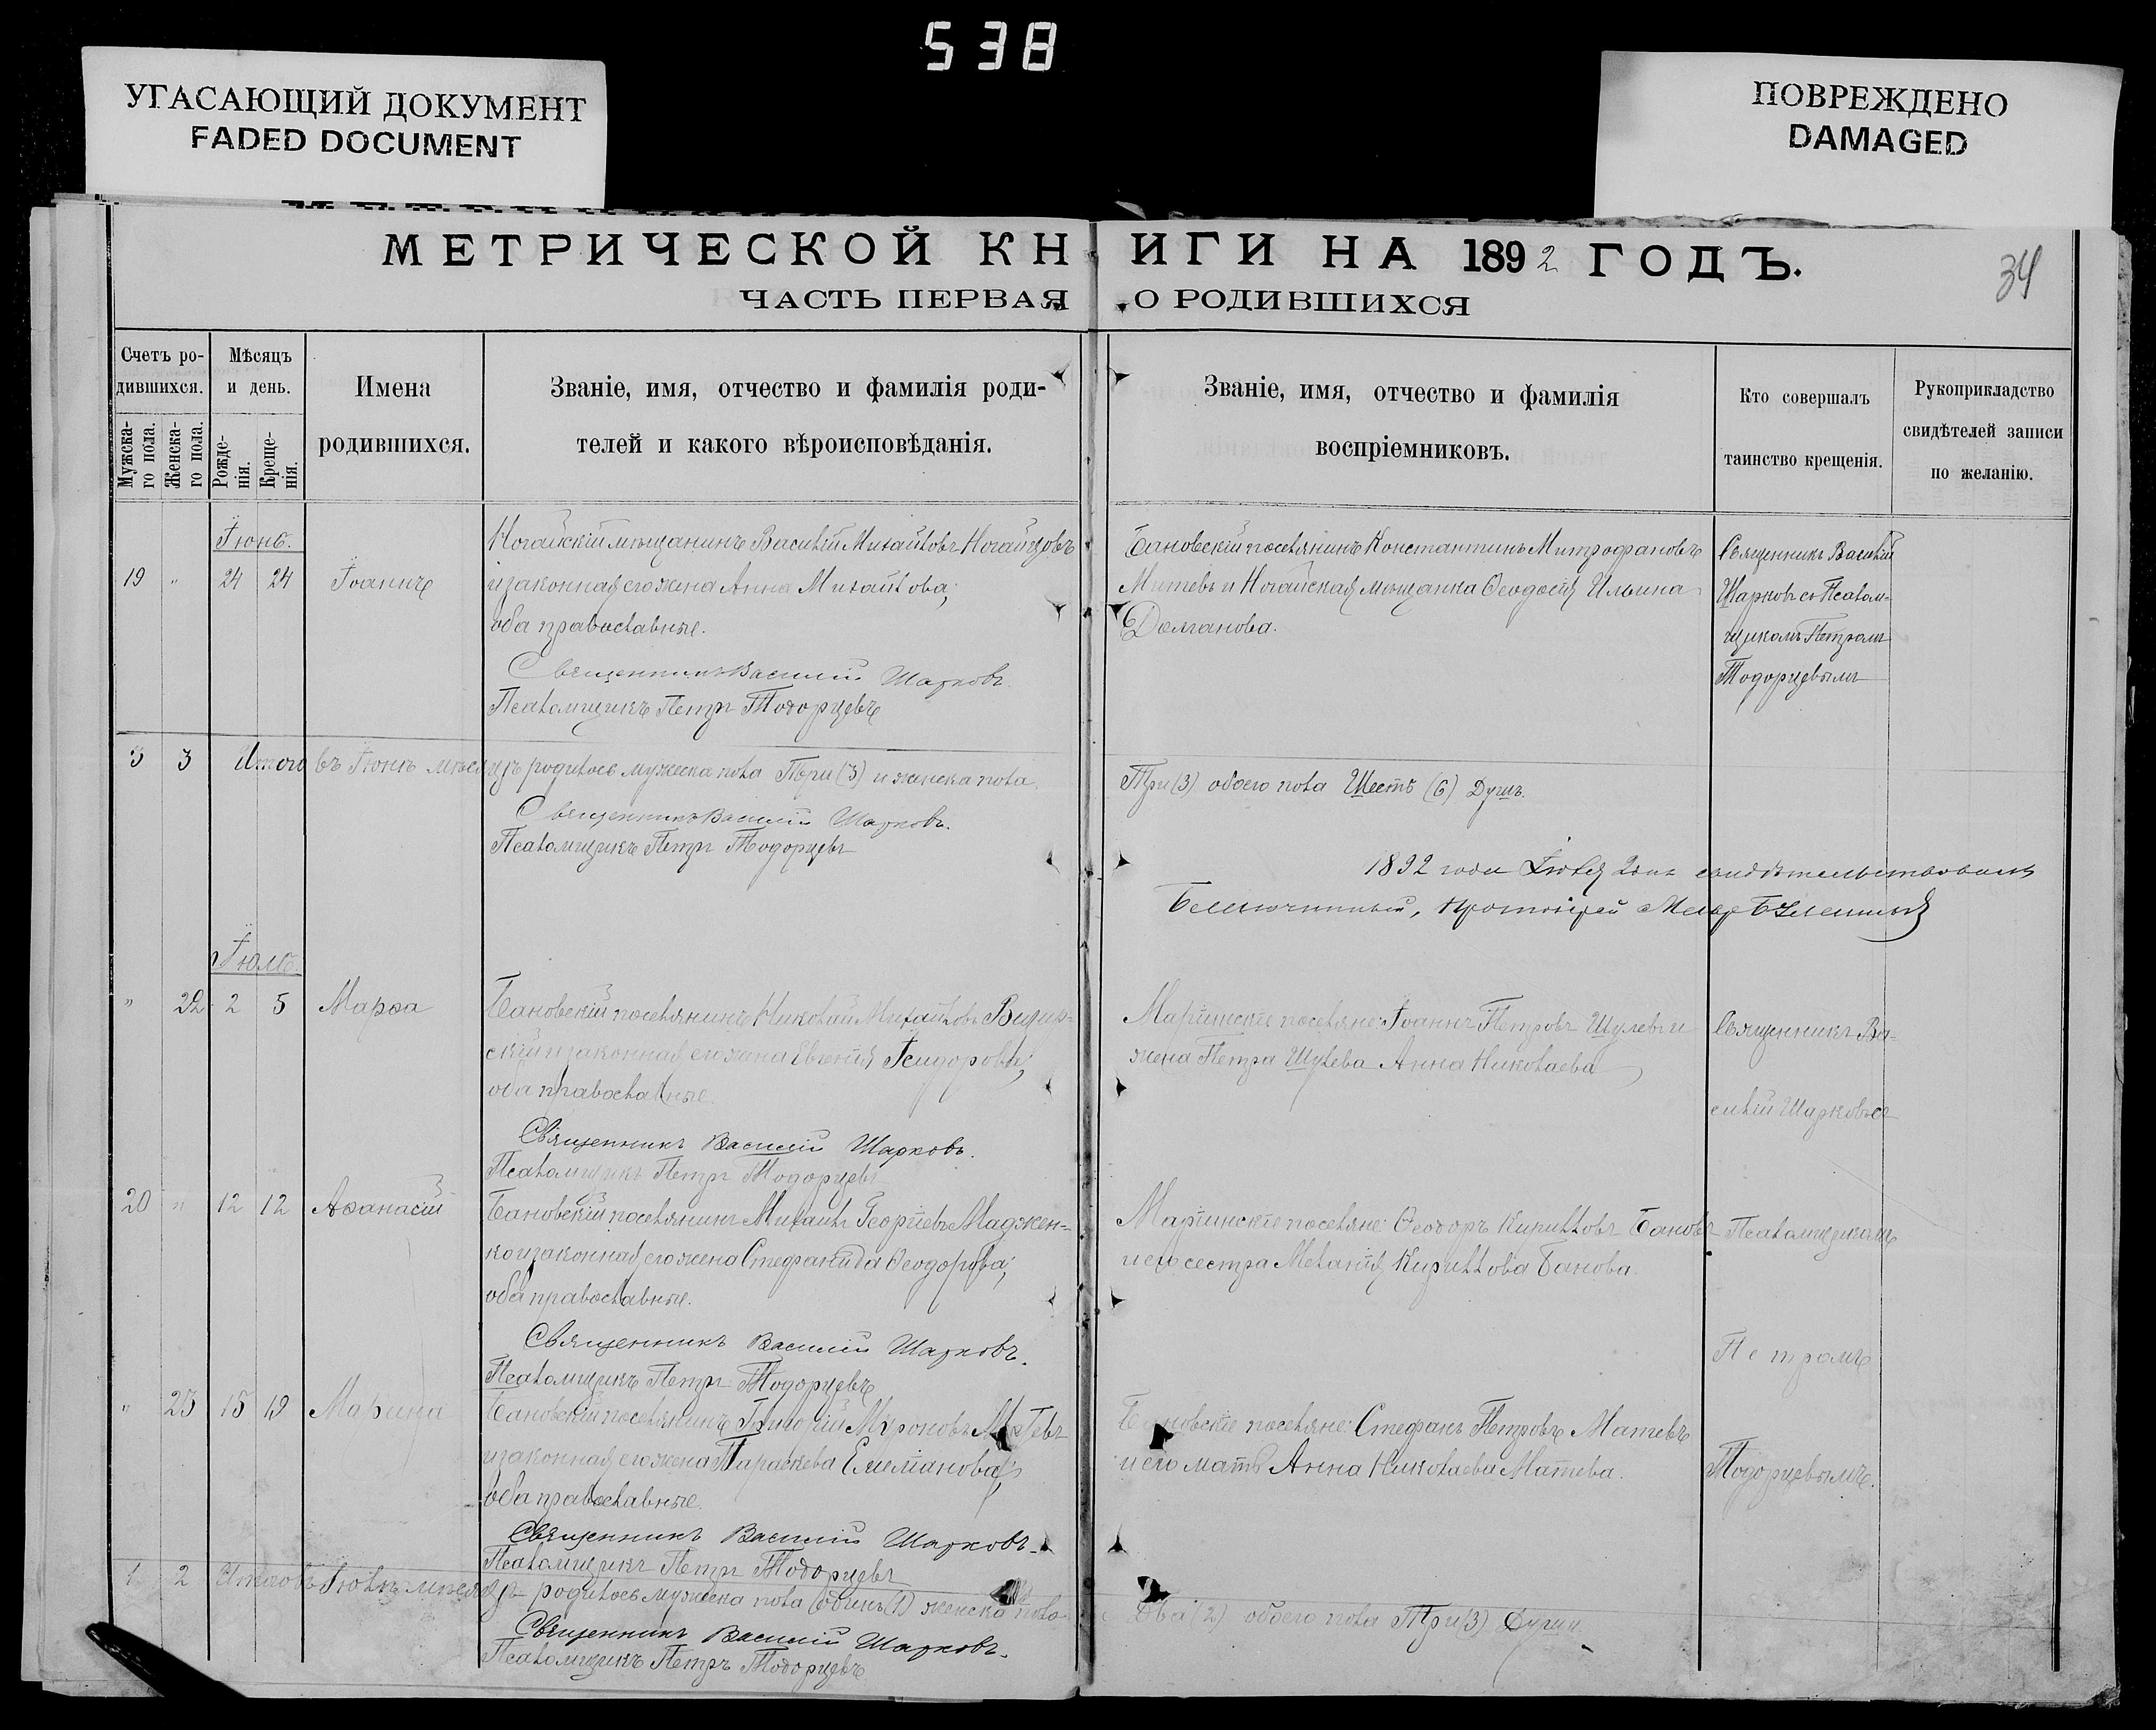 538
УГАСАЮЩИЙ ДОКУМЕНТ
FADED DOCUMENT
ПОВРЕЖДЕНО
DAMAGED
МЕТРИЧЕСКОЙ КНИГИ НА 1892 ГОДЪ.
34
ЧАСТЬ ПЕРВАЯ О РОДИВШИХСЯ
Счетъ ро-
дившихся.
Мужска-
го пола.
Женска-
го пола.
Мѣсяцъ
и день.
Рожде-
нія.
Креще-
нія.
Имена
родившихся.
Званіе, имя, отчество и фамилія роди-
телей и какого вѣроисповѣданія.
Званіе, имя, отчество и фамилія
воспріемниковъ.
Кто совершалъ
таинство крещенія.
Рукоприкладство
свидѣтелей записи
по желанію.
Іюнь.
19 " 24 24 Іоаннъ
Ногайскій мѣщанинъ Василій Михайловъ Ногайцовъ
и законная его жена Анна Михайлова;
оба православные.
Священникъ Василій Шарковъ.
Псаломщикъ Петръ Тодорцевъ
Бановскій поселянинъ Константинъ Митрофановъ
Митевъ и Ногайская мѣщанка Ѳеодосія Ильина
Долганова.
Священникъ Василій
Шарковъ съ Псалом-
щикомъ Петромъ
Тодорцевымъ
3 3 Итого въ Іюнѣ мѣсяцѣ родилось мужеска пола Три (3) и женска пола
Три (3) обоего пола Шесть (6) Душъ.
Священникъ Василій Шарковъ.
Псаломщикъ Петръ Тодорцевъ
1892 года Іюля дня свидѣтельствовалъ
Благочинный, протоіерей
Іюль.
" 22 2 5 Марѳа
Бановскій поселянинъ Николай Михайловъ
скій и законная его жена Евгенія Ісидорова;
оба православные.
Священникъ Василій Шарковъ.
Псаломщикъ Петръ Тодорцевъ
Маріинскіе поселяне: Іоаннъ Петровъ Шулевъ и
жена Петра Шулева Анна Николаева
Священникъ Ва-
силій Шарковъ съ
20 " 12 12 Аѳанасій
Бановскій поселянинъ Михаилъ Георгіевъ Маджен-
ко и законная его жена Стефанида Ѳеодорова;
оба православные.
Священникъ Василій Шарковъ.
Псаломщикъ Петръ Тодорцевъ
Маріинскіе поселяне: Ѳеодоръ Кирилловъ Бановъ
и его сестра Меланія Кириллова Банова.
Псаломщикомъ
Петромъ
" 23 15 19 Марина
Бановскій поселянинъ Григорій Мѵроновъ
и законная его жена Параскева Емеліанова;
оба православные.
Священникъ Василій Шарковъ.
Псаломщикъ Петръ Тодорцевъ
Бановскіе поселяне: Стефанъ Петровъ Матевъ
и его мать Анна Николаева Матева.
Тодорцевымъ.
1 2 Итого въ Іюлѣ мѣсяцѣ родилось мужеска пола Одинъ (1) женска пола
Два (2) обоего пола Три (3) Души.
Священникъ Василій Шарковъ.
Псаломщикъ Петръ Тодорцевъ